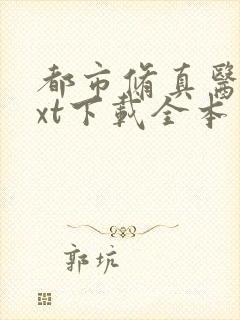 都市脩真醫
xt下載全本
郭坑